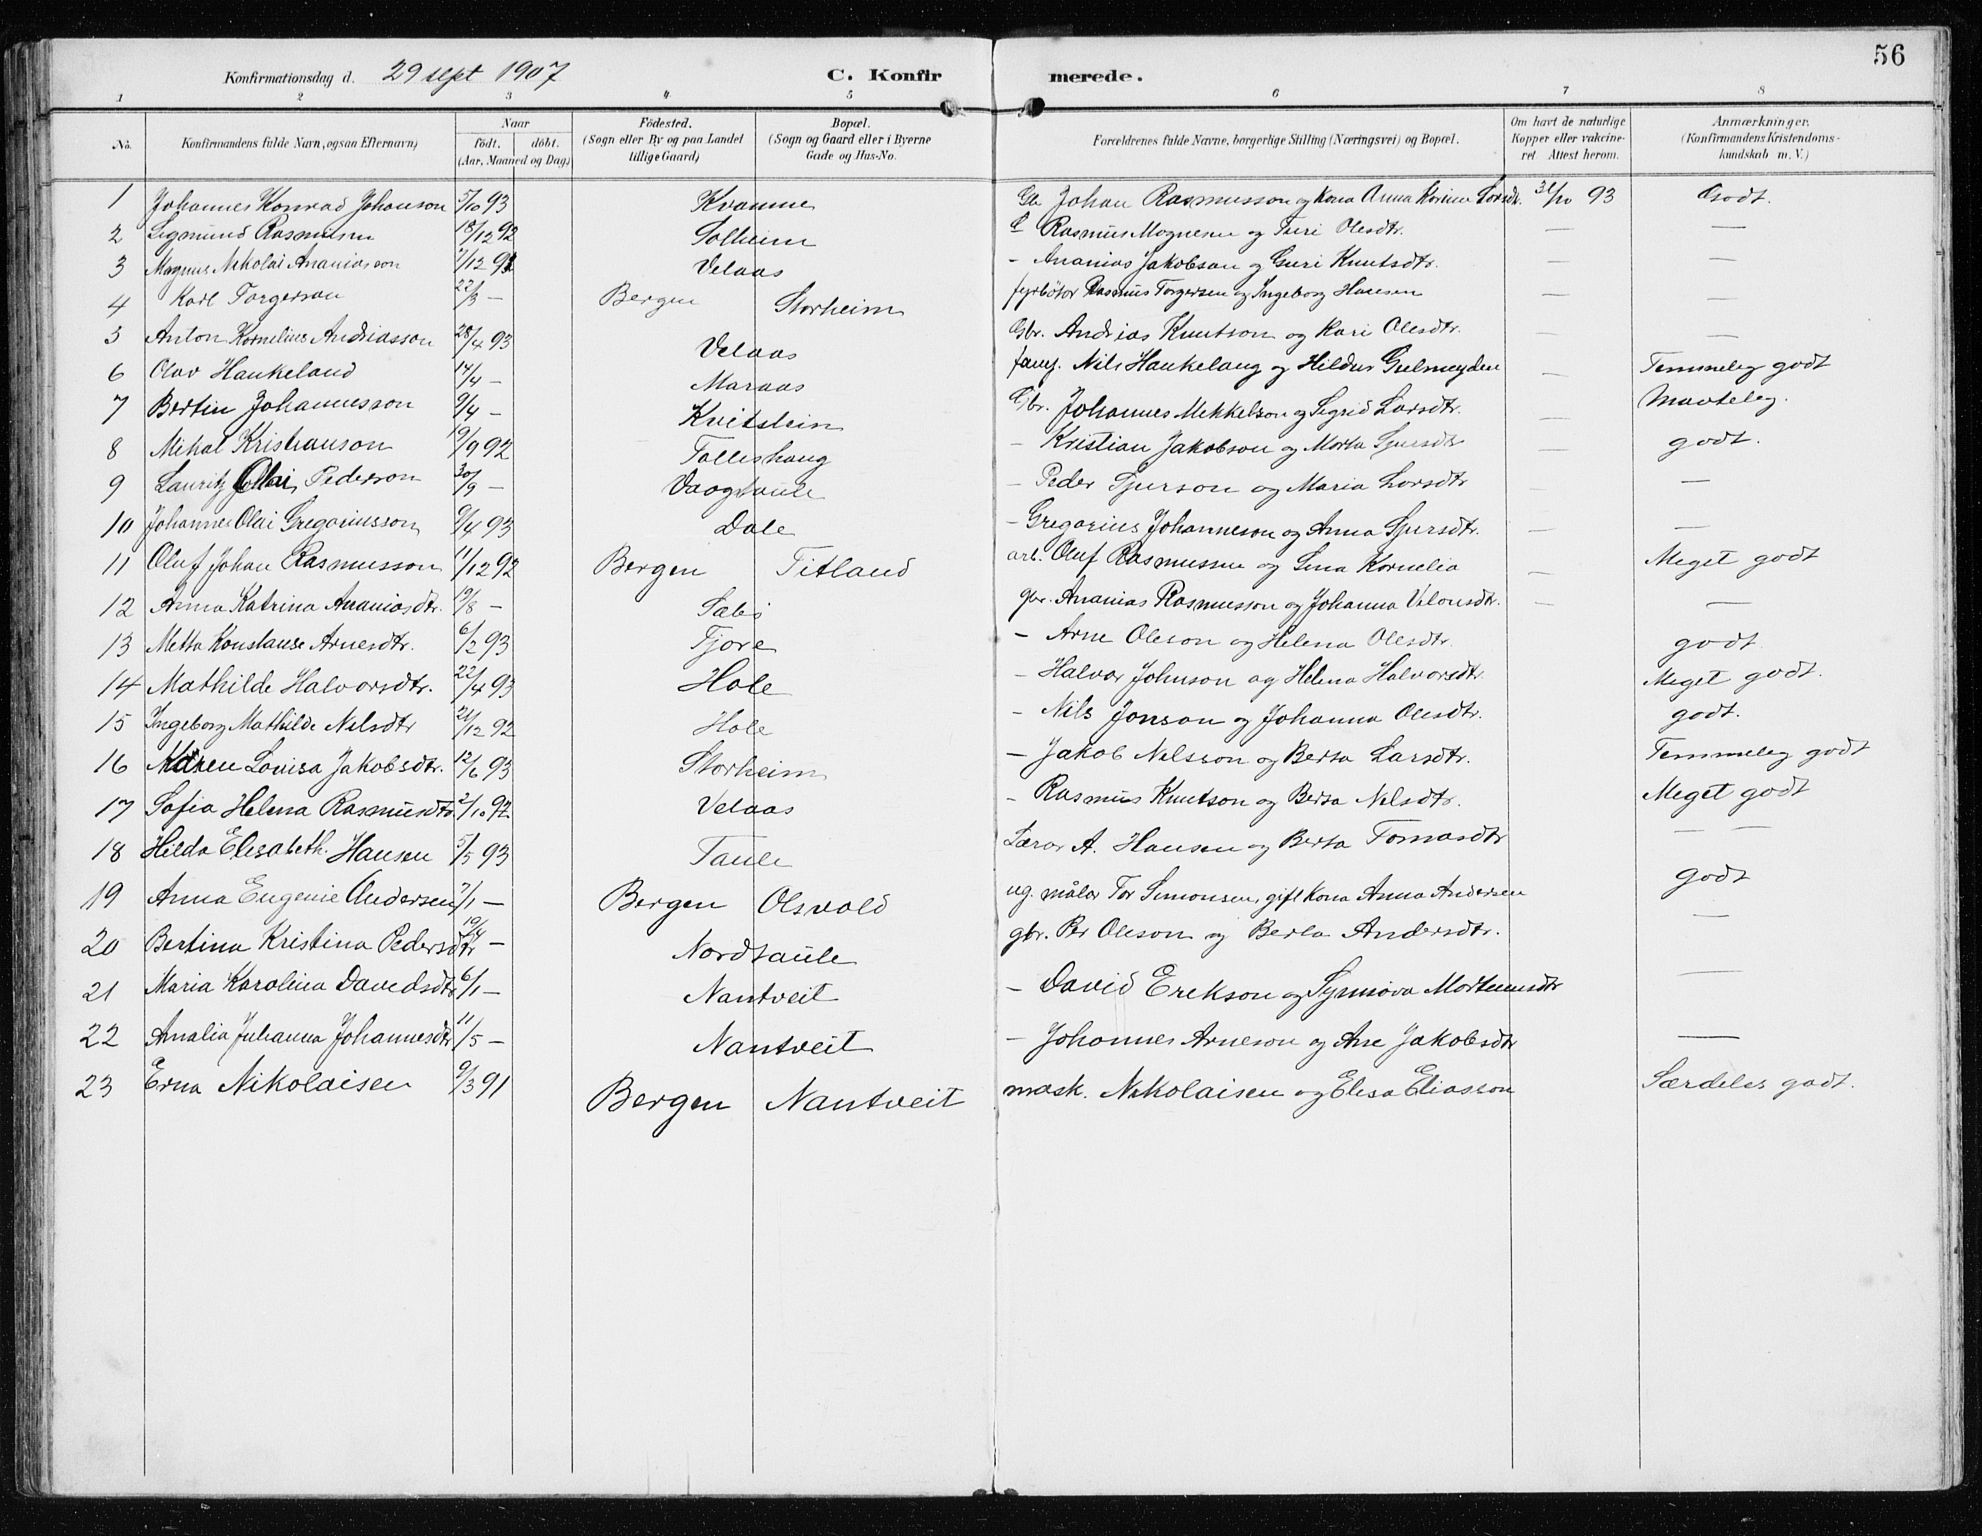 56
Konfirmationsdag d. 29 sept 1907 C. Konfirmerede.
1 2 3 4 5 6 7 8
No. Konfirmandens fulde Navn, ogsaa Efternavn) Naar födt. döbt. (Aar, Maaned og Dag) Födested. (Sogn eller By og paa Landet tillige Gaard) Bopæl. (Sogn og Gaard eller i Byerne Gade og Hus-No. Forældrenes fulde Navne, borgerlige Stilling (Næringsvei) og Bopæl. Om havt de naturlige Kopper eller vakcineret. Attest herom. Anmærkninger. (Konfirmandens Kristendomskundskab m. V.)
1 Johannes Konrad Johanson 5/10 93 Kvamme Johan Rasmusson og kona Anna Korine Larsdt. 31/10 93 Godt.
2 Sigmund Rasmusen 18/12 92 Solheim Rasmus Mognesen og Turi Olesdtr. — —
3 Magnus Nikolai Ananiasson /12 92 Velaas - Ananias Jakobson og Guri Knutsdtr. — —
4 Karl Torgerson 22/3 — Bergen Storheim fyrböter Rasmus Torgersen og Ingeborg Hansen — —
5 Anton Kornelius Andreasson 28/4 93 Velaas Gbr. Andreas Knutson og Kari Olesdtr. — —
6 Olav Haukeland 14/4 — Maraas Nils Haukeland og Hildur Gulmeyden — Temmeleg godt
7 Bertin Johannesson 9/4 — Kvitstein Gbr. Johannes Mikkelson og Sigrid Larsdtr. — Maateleg.
8 Mikal Kristianson 19/9 92 Tolleshaug - Kristian Jakobson og Marta Sjursdtr — godt.
9 Lauritz Olai Pederson 30/9 — Vaagtaule - Peder Sjurson og Maria Larsdtr — —
10 Johannes Olai Gregoriusson 9/4 93 Dale - Gregorius Johanneson og Anna Sjursdtr. — —
11 Oluf Johan Rasmusson 11/12 92 Bergen Titland arb. Oluf Rasmussen og Lina Kornelia — Meget godt
12 Anna Katrina Ananiasdtr. 19/8 — Sabö gbr. Ananias Rasmusson og Johanna Vilonsdtr. — —
13 Metta Konstanse Arnesdtr. 6/2 93 Tjore - Arne Oleson og Helena Olesdtr. godt
14 Mathilde Halvorsdtr. 22/4 93 Hole - Halvor Johnson og Helena Halvorsdtr. Meget godt.
15 Ingeborg Mathilde Nilsdtr 21/12 92 Hole - Nils Jonson og Johanna Olesdtr. godt.
16 Karen Lovisa Jakobsdtr. 12/6 93 Storheim - Jakob Nilsson og Berta Larsdtr. Temmeleg godt
17 Sofia Helena Rasmusdtr 2/10 92 Velaas - Rasmus Knutson og Berta Nilsdtr. Meget godt
18 Hilda Elisabeth Hansen 5/5 93 Taule Lærar A. Hansen og Berta Tomasdtr — —
19 Anna Eugenie Andersen 7/1 — Bergen Olsvold ug. målar Tor Simonsen, gift kona Anna Andersen godt
20 Bertina Kristina Pedersdtr 19/4 — Nordtaule gbr. Per Oleson og Berta Andersdtr. —
21 Maria Karolina Davidsdtr 6/1 — Nantveit - David Erikson og Synnøva Mortensdtr —
22 Amalia Juhanna Johannesdtr 11/5 — Nantveit - Johannes Arneson og Ane Jakobsdtr —
23 Erna Nikolaisen 9/3 91 Bergen Nantveit mask. Nikolaisen og Elisa Eliasson Særdeles godt.